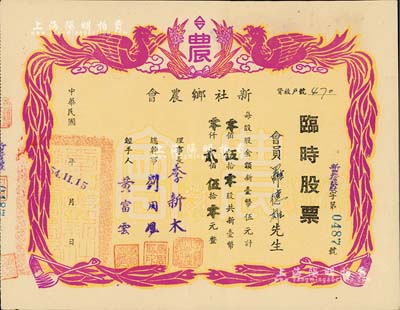 上海阳明拍卖
農
新社鄉農會
資放戶號 470
臨時股票
新農股字第0487號
會員 先生
每股股金額新臺幣伍元計
零佰伍拾零股共新臺幣
零仟貳佰伍拾零元整
理事 李新木
總幹事 劉用鳳
經手人 黃富雲
中華民國 年 月 日
54.11.15
上海阳明拍卖
Yangmingauction.com